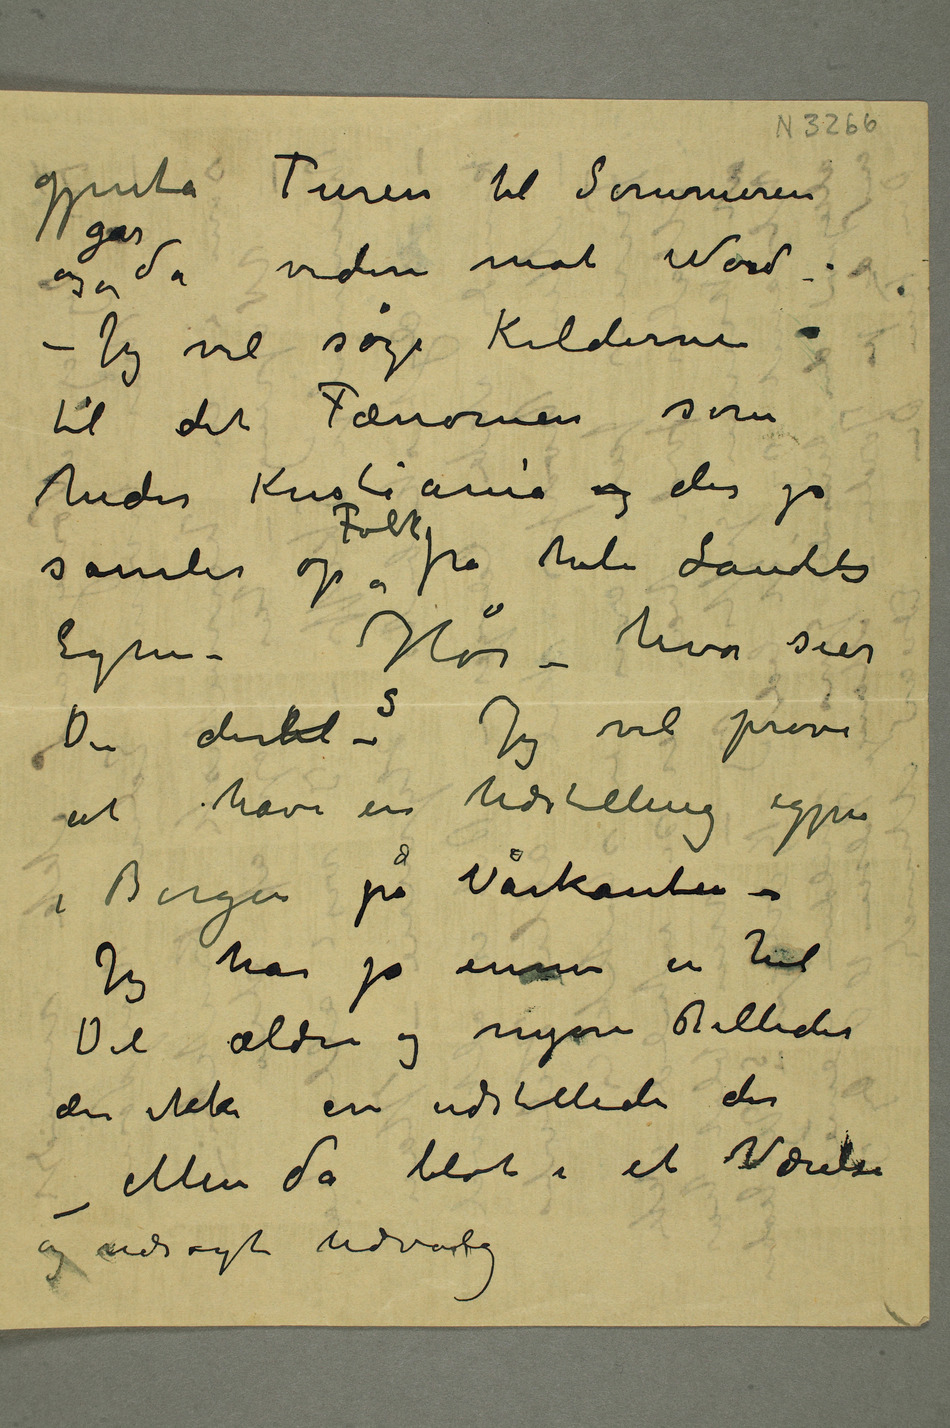 N 3266
gjenta Turen til Sommeren
og går da videre mot Nord –
– Jeg vil søge Kilderne
til det Fænomen som
heder Kristiania og der jo
samler op Folk fra hele Landets
Egne – Hør – hvor sier
Du – S Jeg vil prøve
at have en Udstilling igjen
i Bergen på Vårkanten –
Jeg har jo ennu en hel
Del ældre og nyere Billeder
der ikke er udstillede der
– Men da blot i et Værelse
og udsøgt Udvalg